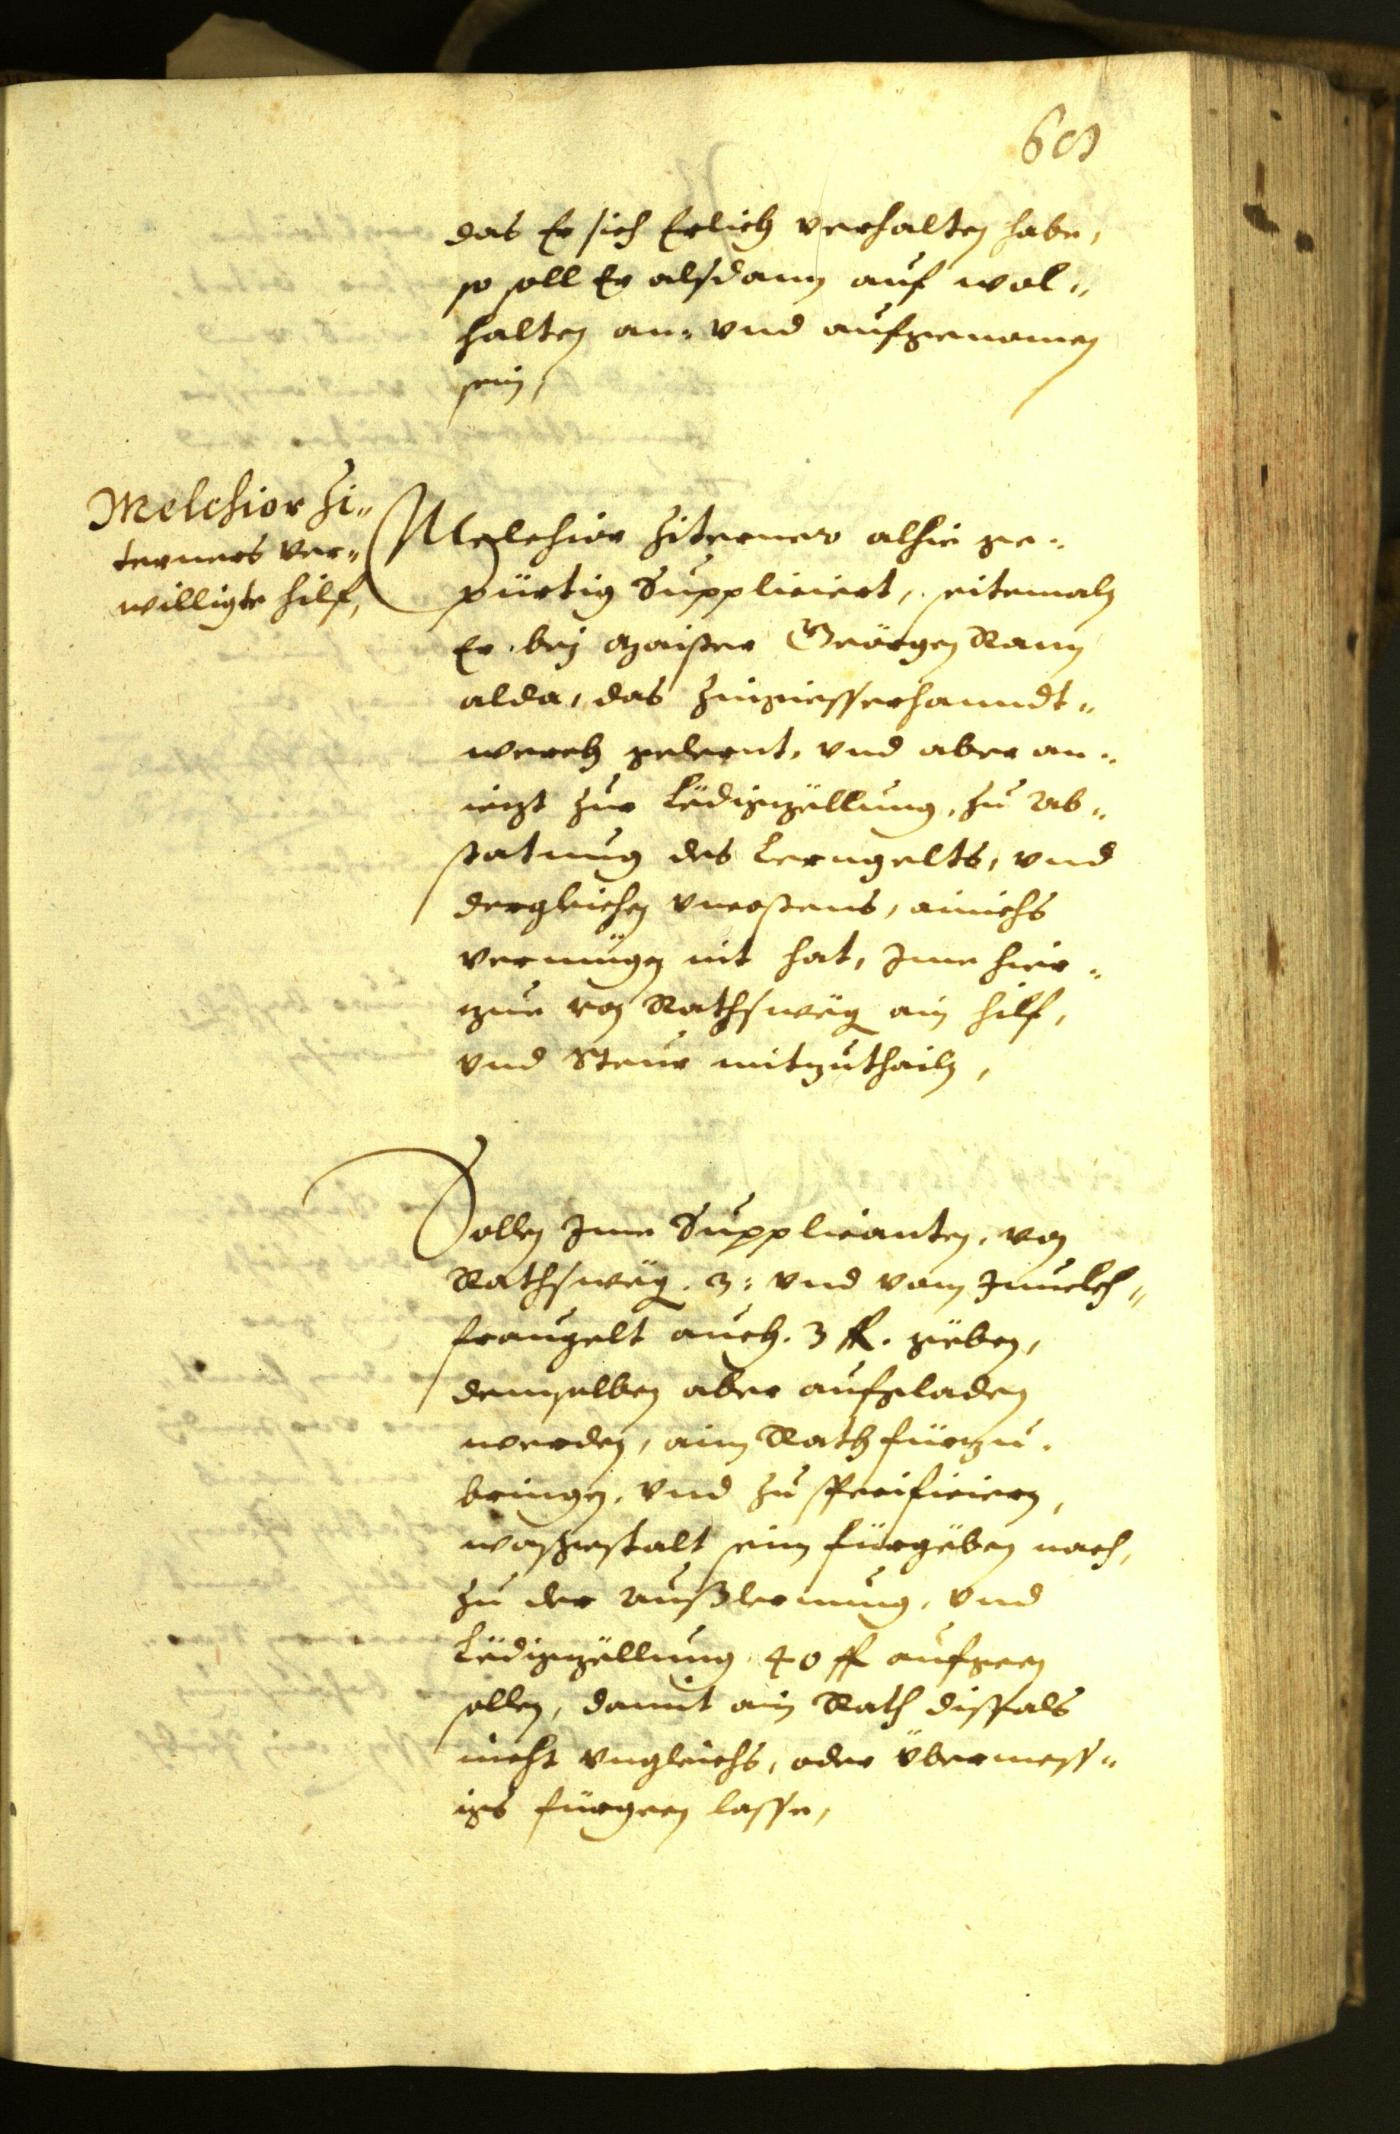 609
das Er sich Erlich verhalten habe,
so soll Er alsdann auf wol„
halten an: vnd aufgenomen
sein,
Melchior Zi„
terners ver„
willigte hilf,
Melchior Ziterner alhie ge„
pürtig Suppliciert, seitemaln
Er bej Maister Geörgen Rann
alda, das Zingiesserhanndt„
werch gelernt, vnd aber an„
iezt zur Ledigzellung, zu Ab„
statnung des Lerngelts, vnd
dergleichen vncostens, ainichs
vermügen nit hat, Ime hier„
zue von Rathsweg ain hilf,
vnd Steur mitzuthailn,
Sollen Ime Supplicanten, von
Rathsweg 3: vnd vom
auch 3 fl. geben,
demselben aber aufgladen
werden, aim Rath fürzu„
bringen, vnd zu specificiern,
wasgestalt seim fürgeben nach,
zu der Außlernung, vnd
Ledigzellung 40 fl aufgeen
sollen, damit ain Rath dissfals
nicht vngleichs, oder übermess„
igs fürgeen lasse,